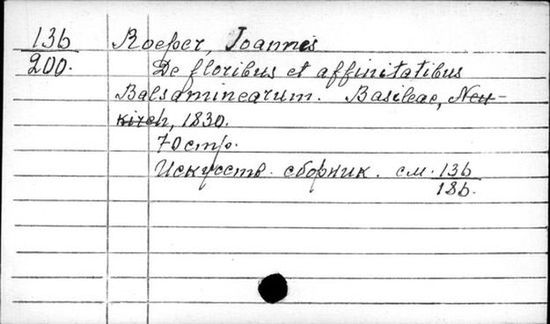 13b Roeper, Joannis
200. De floribus et affinitatibus
Balsaminearum. Basileae, Neu-
kirch, 1830.
70 стр.
Искусств. сборник. см. 13b
18b.